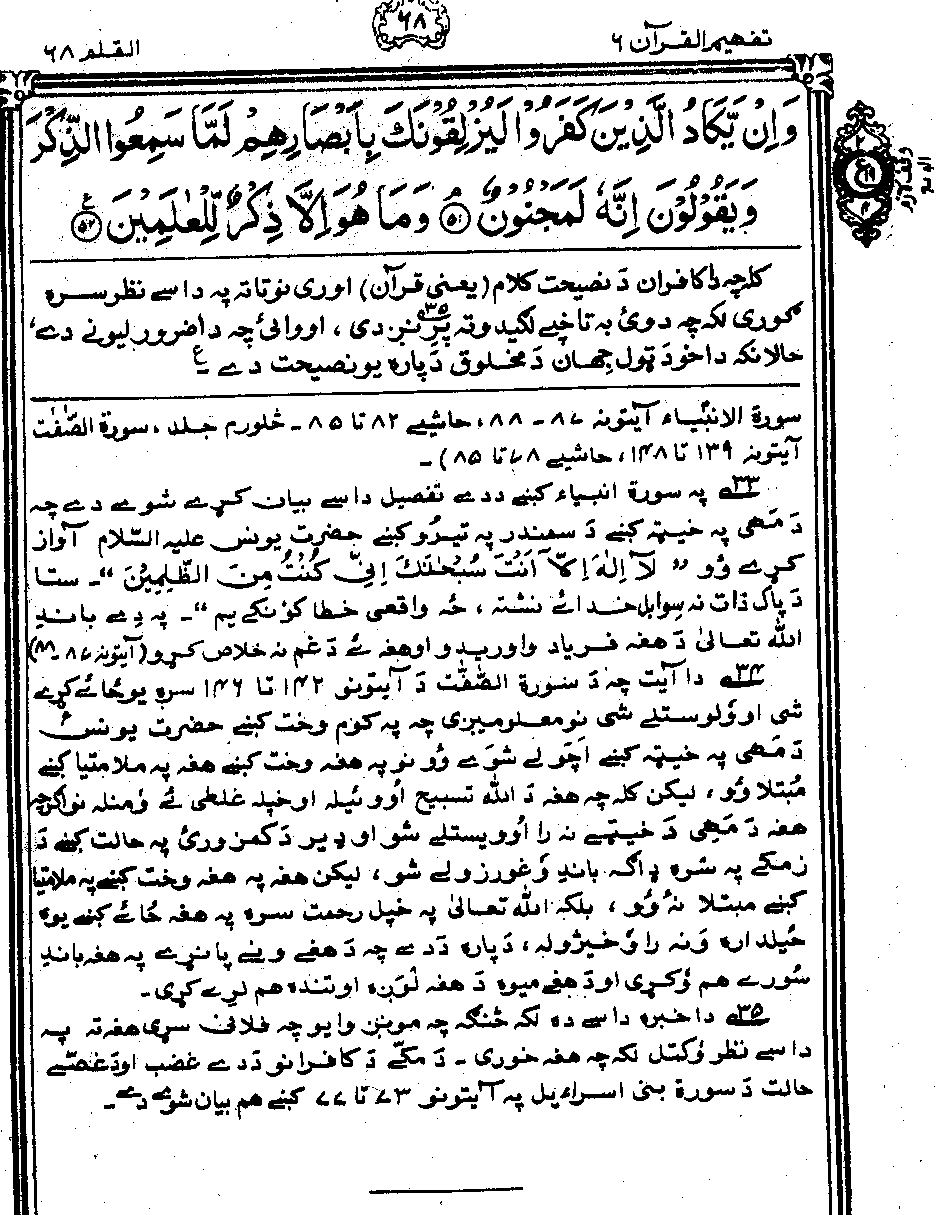 تفهیم القرآن ۶
۶۸
القلم ۶۸
وَاِنۡ یَّکَادُ الَّذِیۡنَ کَفَرُوۡا لَیُزۡلِقُوۡنَکَ بِاَبۡصَارِہِمۡ لَمَّا سَمِعُوا الذِّکۡرَ
وَیَقُوۡلُوۡنَ اِنَّہٗ لَمَجۡنُوۡنٌ ﴿۵۱﴾ وَمَا ہُوَ اِلَّا ذِکۡرٌ لِّلۡعٰلَمِیۡنَ ﴿۵۲﴾
کلچه دا کافران دَ نصیحت کلام (یعنی قرآن) اوری نو تاته په داسے نظر سره
ګوری لکه چه دوئ به تا خپے لګیدو ته پریږدی ۳۵، او وائی چه دا ضرور لیونے دے،
حالانکه دا خود ټول جهان دَ مخلوق دَ پاره یو نصیحت دے ۔ ع
سورة الانبیاء آیتونه ۸۷ – ۸۸، حاشیے ۸۲ تا ۸۵ ۔ څلورم جلد، سورة الصّٰفّٰت
آیتونه ۱۳۹ تا ۱۴۸، حاشیے ۷۸ تا ۸۵) ۔
۳۳ په سورة انبیاء کښے ددے تفصیل داسے بیان کړے شوے دے چه
دَ مهی په خیټه کښے دَ سمندر په تیرو کښے حضرت یونس علیه السّلام آواز
کړے وُو ” لَآ اِلٰهَ اِلَّآ اَنْتَ سُبْحٰنَكَ اِنِّیْ كُنْتُ مِنَ الظّٰلِمِیْنَ “۔ ستا
دَ پاک ذات نه سوا بل خدائے نشته، څه واقعی خطا کوونکے یم “۔ په دے باندِ
الله تعالیٰ دَ هغه فریاد واوریدو او هغه ئے دَ غم نه خلاص کړو (آیتونه ۸۷ ـ ۸۸)
۳۴ دا آیت چه دَ سورة الصّٰفّٰت دَ آیتونو ۱۴۲ تا ۱۴۶ سره یوځائے کړے
شی او وُلوستلے شی نو معلومیږی چه په کوم وخت کښے حضرت یونس ؑ
دَ مهی په خیټه کښے اچولے شوے وُو نو په هغه وخت کښے هغه په ملامتیا کښے
مُبتلا وُو، لیکن کله چه هغه دَ الله تسبیح اُووئیله او خپله غلطی ئے وُمنله نو اګرچه
هغه دَ مهی دَ خیټے نه را اُوویستلے شو او ډیر دَ کمزورئ په حالت کښے دَ
زمکے په سُره ډاګه باندِ وُغورزولے شو، لیکن هغه په هغه وخت کښے په ملامتیا
کښے مبتلا نه وُو، بلکه الله تعالیٰ په خپل رحمت سره په هغه ځائے کښے یوه
څیلداره وَنه را وُخیژوله، دَ پاره دَدے چه دَ هغے ویے پاڼے په هغه باندِ
سُورے هم وُکړی او دَ هغے میوه دَ هغه لوَږه او تنده هم لرے کړی ۔
۳۵ دا خبره داسے ده لکه څنګه چه مونږ وایو چه فلانی سړی هغه ته په
داسے نظر وُکتل لکه چه هغه خوری ۔ دَ مکّے دَ کافرانو دَدے غضب او دَ غصّے
حالت دَ سورة بنی اسراءیل په آیتونو ۷۳ تا ۷۷ کښے هم بیان شوے دے ۔